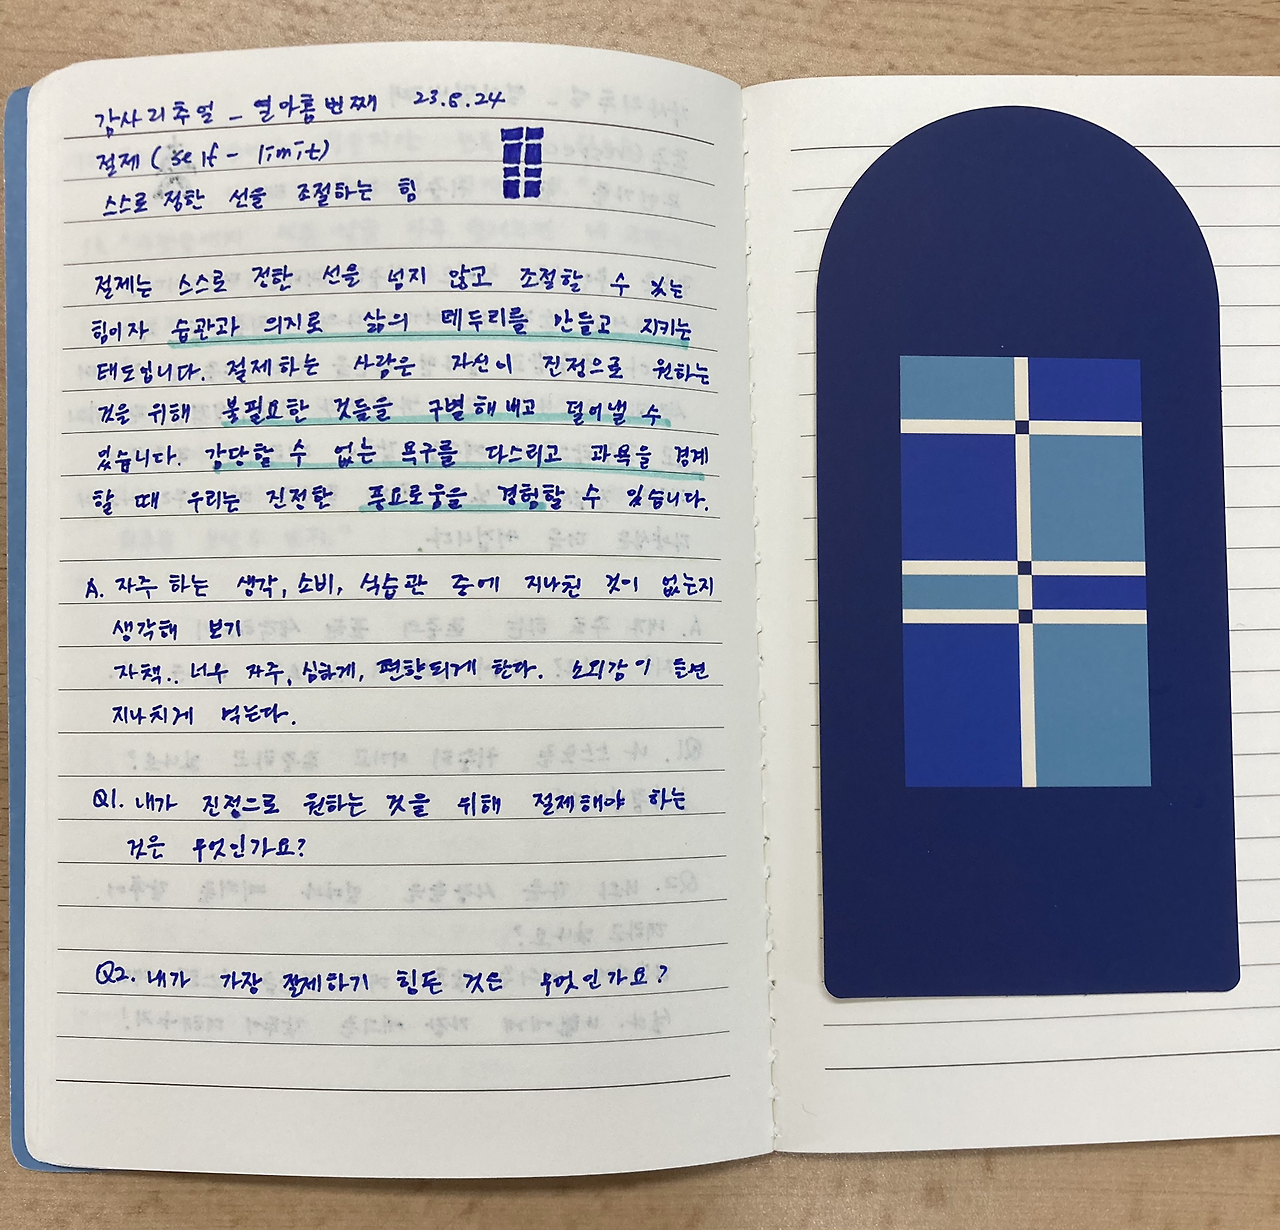 감사리추얼 _ 열아홉번째 23.8.24
절제 (self - limit)
스스로 정한 선을 조절하는 힘
절제는 스스로 정한 선을 넘지 않고 조절할 수 있는
힘이자 습관과 의지로 삶의 테두리를 만들고 지키는
태도입니다. 절제하는 사람은 자신이 진정으로 원하는
것을 위해 불필요한 것들을 구별해내고 덜어낼 수
있습니다. 감당할 수 없는 욕구를 다스리고 과욕을 경계
할 때 우리는 진정한 풍요로움을 경험할 수 있습니다.
A. 자주 하는 생각, 소비, 식습관 중에 지나친 것이 없는지
생각해 보기
자책.. 너무 자주, 심하게, 편향되게 한다. 소외감이 들면
지나치게 먹는다.
Q1. 내가 진정으로 원하는 것을 위해 절제해야 하는
것은 무엇인가요?
Q2. 내가 가장 절제하기 힘든 것은 무엇인가요?